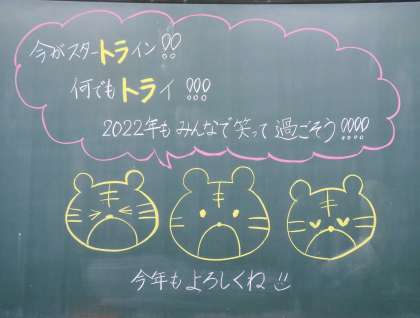 今がスタートライン!!
何でもトライ!!!
2022年もみんなで笑って過ごそう!!!!
今年もよろしくね